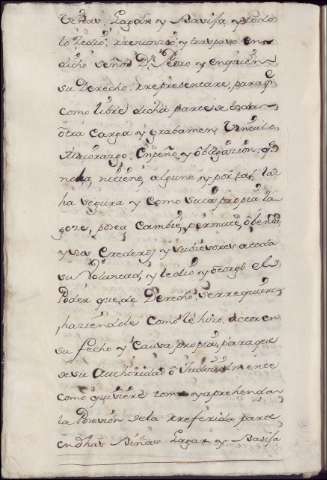 Viñas, Lagar, y Vasija, y todo
lo Zedio, Renunzió y traspaso en el
dicho Señor Dn. y en quien
su Derecho, rrepresentare, para qe
como libre dicha parte de
otra Carga y grabamen, Vinculo,
Empeño, y obligazion, qe
no la tiene alguna, y por tal la
ha segura y como suia propia la
goze, posea, Cambie, permute, o benda
y sus Erederos y subzesores a toda
su Voluntad, y le dio y otorgó el
Poder que, de Derecho Se rrequiere,
haziendole como le hizo, actor en
su fecho y Causa propia, para que
de su Authoridad o Judizialmente
como quisiere tome y aprehenda
la Posesion de la rreferida parte
en dhas Viñas Lagar y Vasija